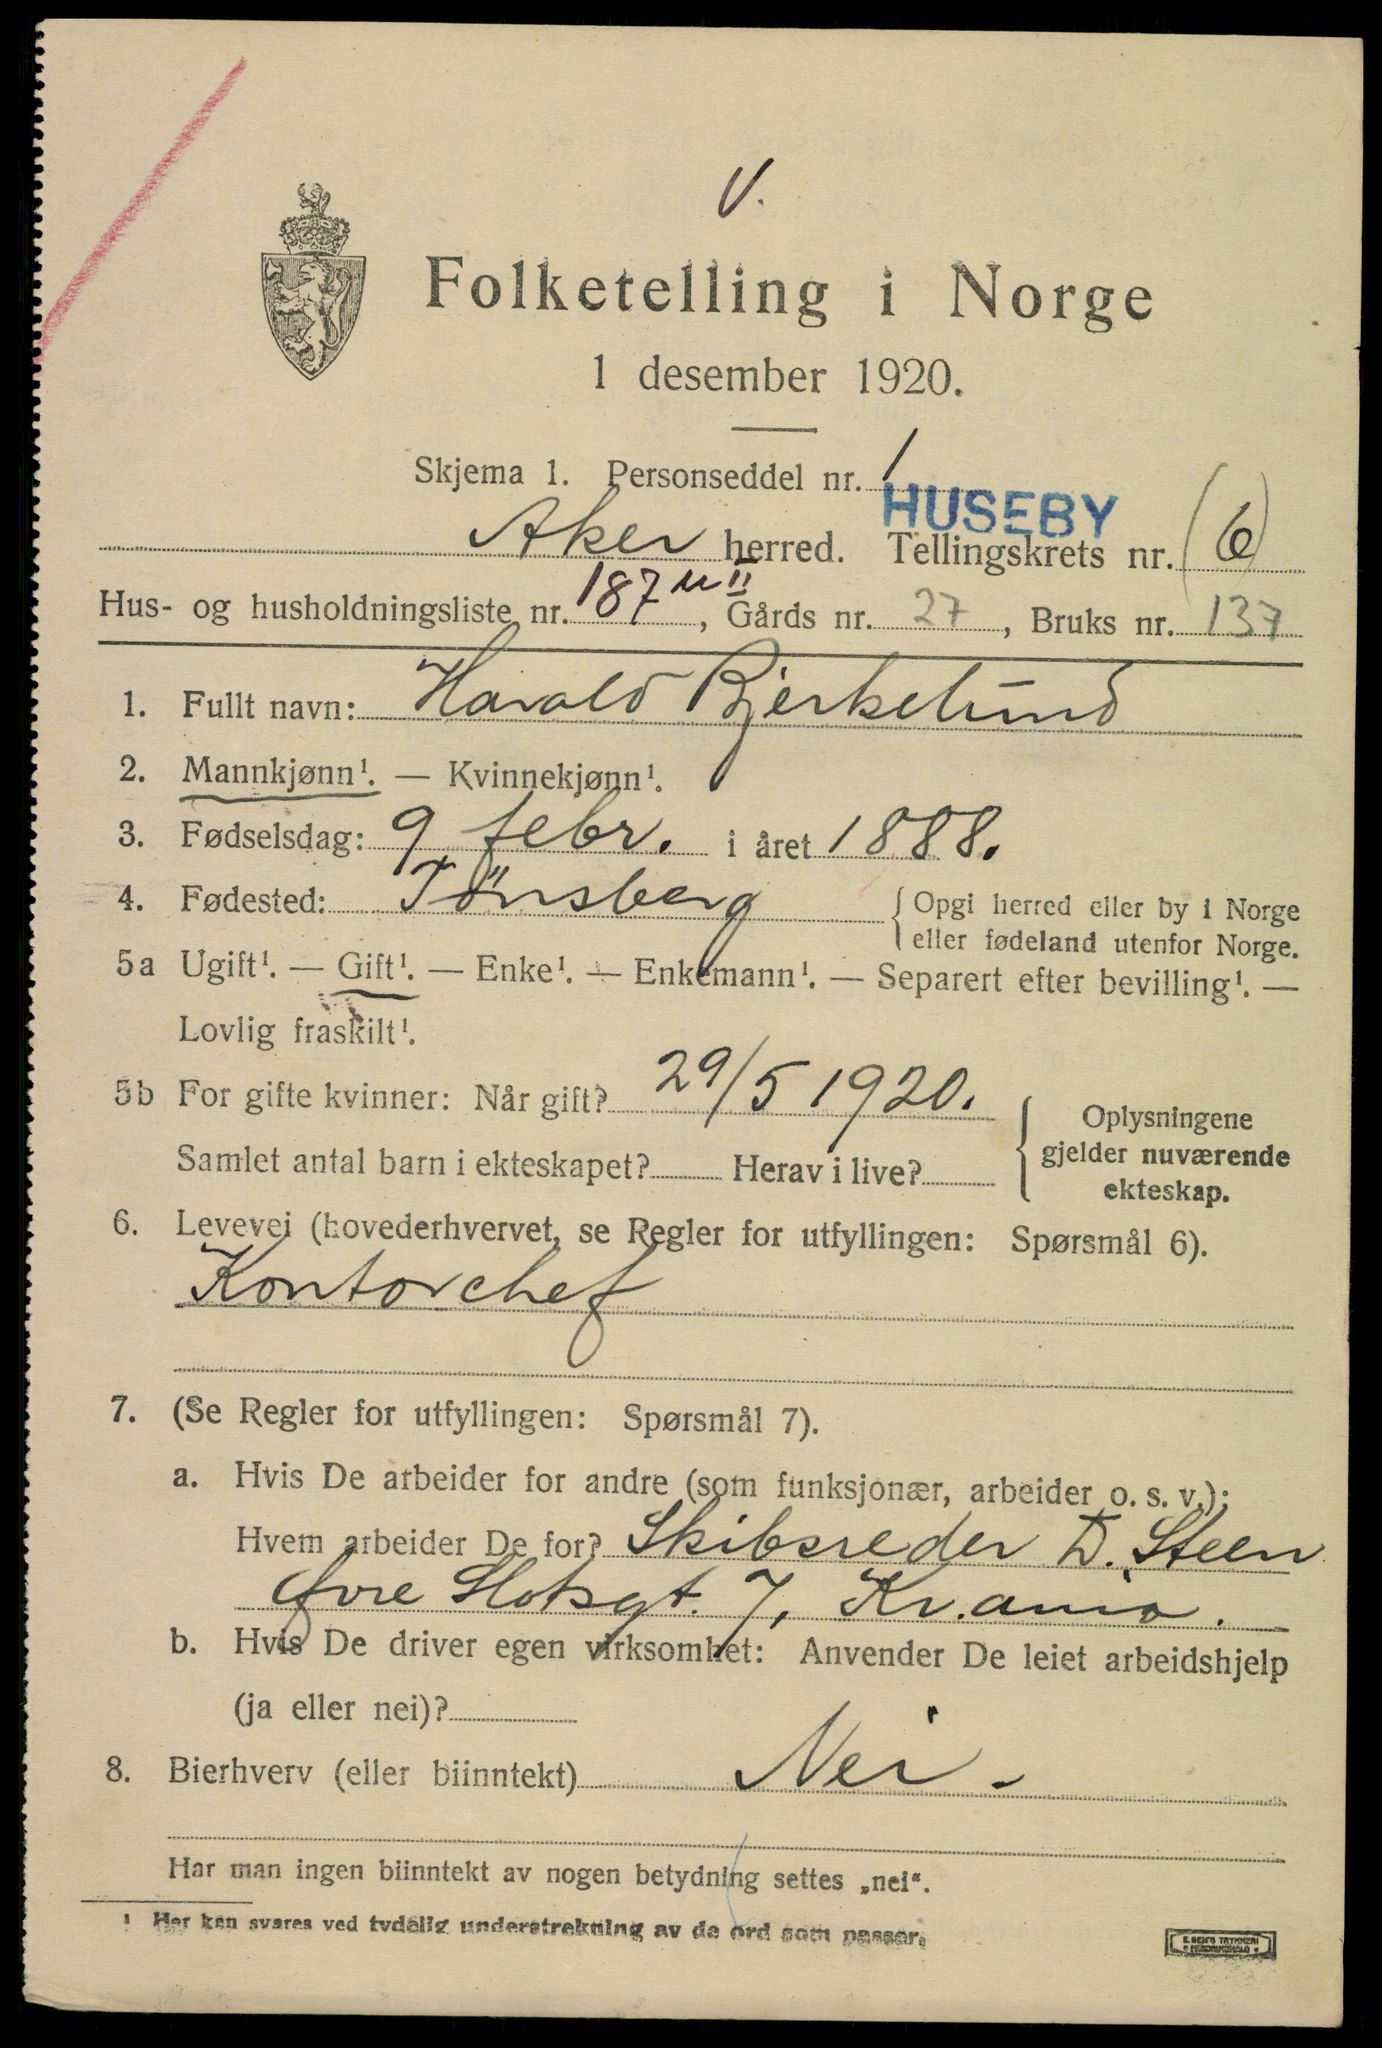 V.
Folketelling i Norge
1 desember 1920.
Skjema 1. Personseddel nr. 1
HUSEBY
Aker herred. Tellingskrets nr. (6)
Hus- og husholdningsliste nr. 187 II, Gårds nr. 27, Bruks nr. 137
1. Fullt navn: Harald Bjerkelund
2. Mannkjønn¹. — Kvinnekjønn¹.
3. Fødselsdag: 9 febr. i året 1888.
4. Fødested: Tønsberg { Opgi herred eller by i Norge
eller fødeland utenfor Norge.
5a Ugift¹. — Gift¹. — Enke¹. — Enkemann¹. — Separert efter bevilling¹. —
Lovlig fraskilt¹.
5b For gifte kvinner: Når gift? 29/5 1920.
Samlet antal barn i ekteskapet? Herav i live?
{ Oplysningene
gjelder nuværende
ekteskap.
6. Levevei (hovederhvervet, se Regler for utfyllingen: Spørsmål 6).
Kontorchef
7. (Se Regler for utfyllingen: Spørsmål 7).
a. Hvis De arbeider for andre (som funksjonær, arbeider o. s. v.):
Hvem arbeider De for? Skibsreder D. Steen
Øvre Slotsgt. 7, Kr.ania.
b. Hvis De driver egen virksomhet: Anvender De leiet arbeidshjelp
(ja eller nei)?
8. Bierhverv (eller biinntekt) Nei.
Har man ingen biinntekt av nogen betydning settes „nei“.
¹ Her kan svares ved tydelig understrekning av de ord som passer.
E. SEM'S TRYKKERI
FREDRIKSHALD